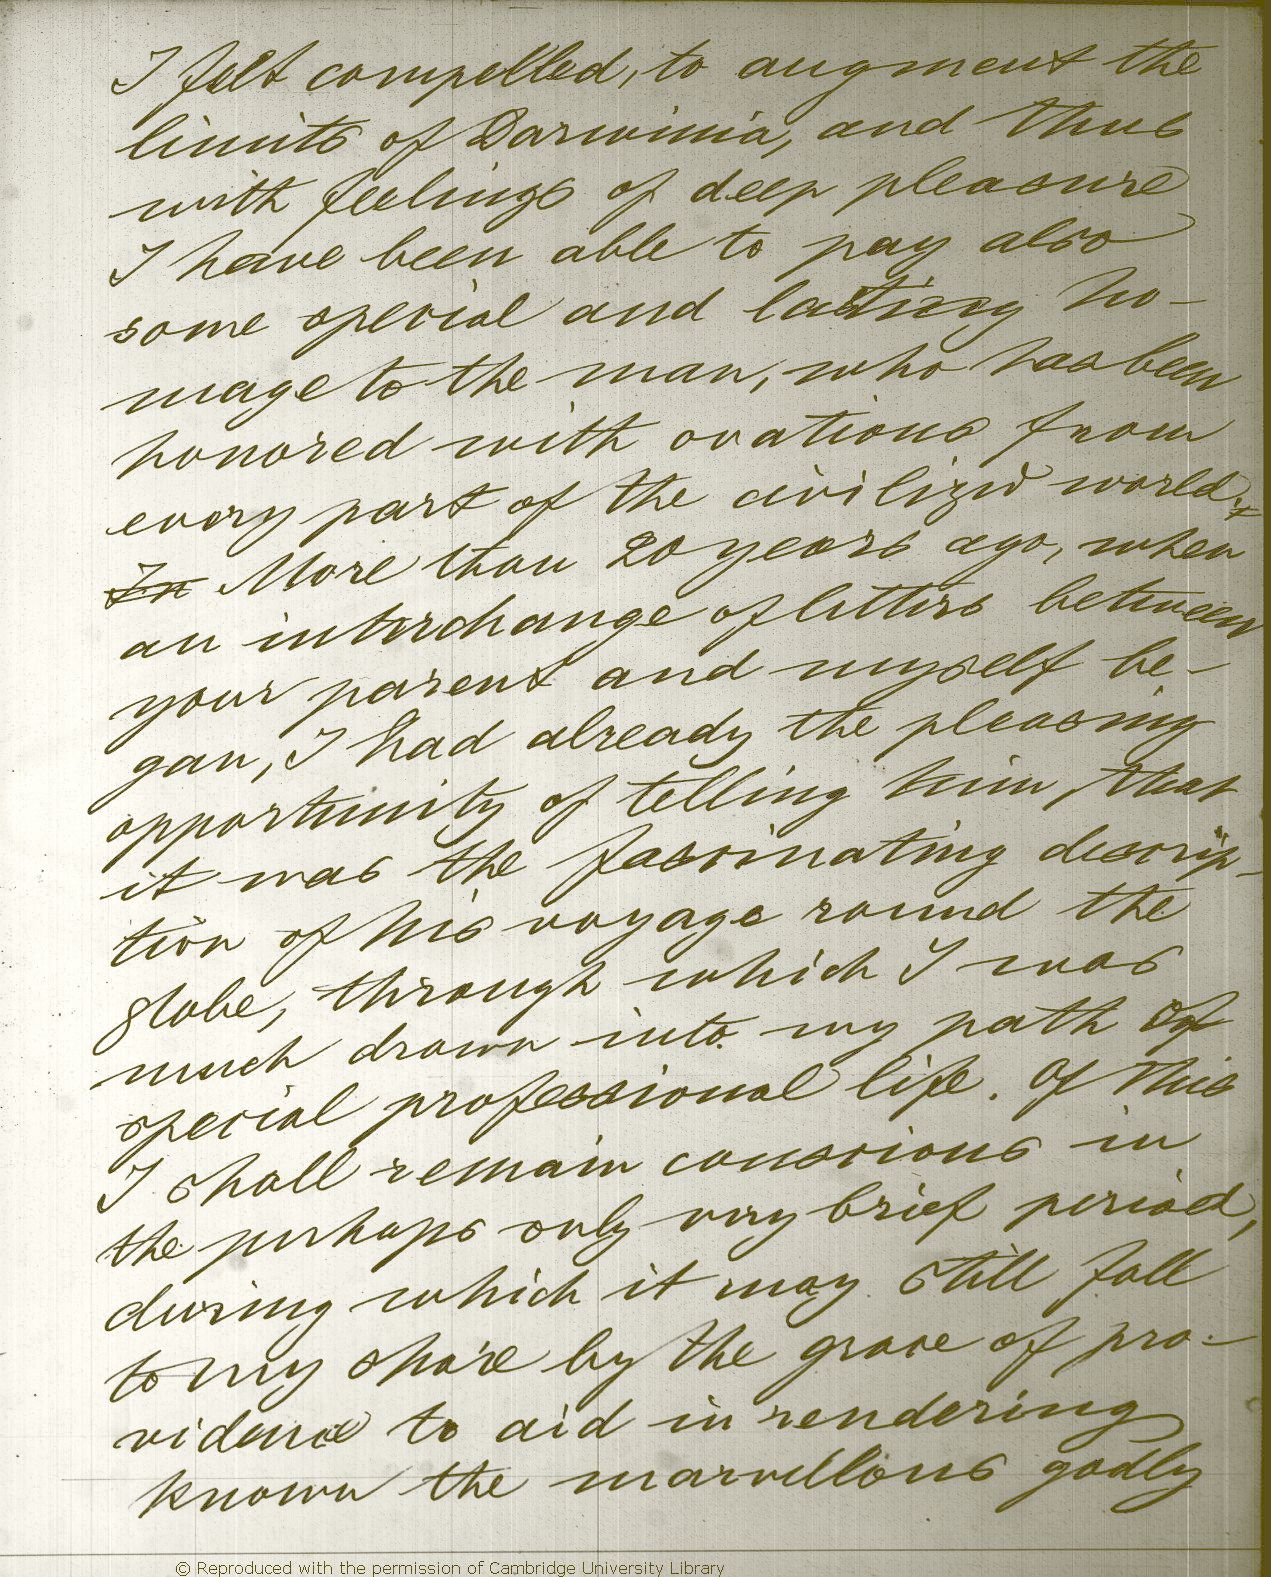 I felt compelled, to augment the
limits of Darwinia, and thus
with feelings of deep pleasure
I have been able to pay also
some special and lasting ho-
mage to the man, who has been
honored with ovations from
every part of the civilized world.
In More than 20 years ago, when
an interchange of letters between
your parent and myself be-
gan, I had already the pleasing
opportunity of telling him, that
it was the fascinating descrip-
tion of his voyage round the
globe, through which I was
much drawn into my path of
special professional life. Of this
I shall remain conscious in
the perhaps only very brief period,
during which it may still fall
to my share by the grace of pro-
vidence to aid in rendering
known the marvellous godly
© Reproduced with the permission of Cambridge University Library